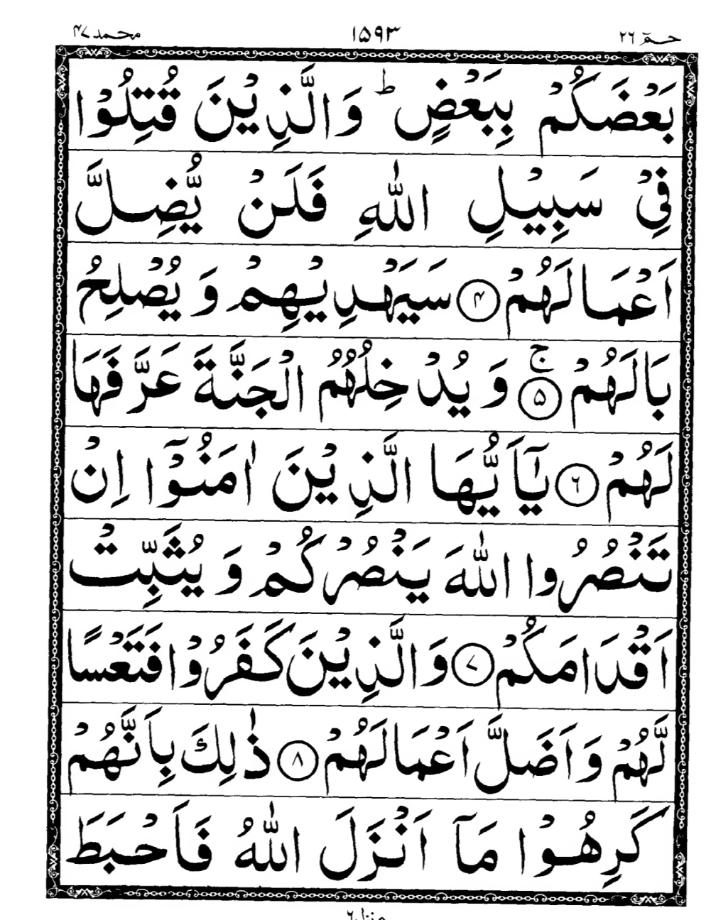 حٰمٓ ٢٦ ١٥٩٣ محمد ٤٧
بَعْضَكُمْ بِبَعْضٍ ؕ وَالَّذِيْنَ قُتِلُوْا
فِيْ سَبِيْلِ اللّٰهِ فَلَنْ يُّضِلَّ
اَعْمَالَهُمْ ﴿۴﴾ سَيَهْدِيْهِمْ وَ يُصْلِحُ
بَالَهُمْ ﴿۵﴾ۚ وَ يُدْخِلُهُمُ الْجَنَّةَ عَرَّفَهَا
لَهُمْ ﴿۶﴾ يٰٓاَيُّهَا الَّذِيْنَ اٰمَنُوْٓا اِنْ
تَنْصُرُوا اللّٰهَ يَنْصُرْكُمْ وَ يُثَبِّتْ
اَقْدَامَكُمْ ﴿۷﴾ وَالَّذِيْنَ كَفَرُوْا فَتَعْسًا
لَّهُمْ وَ اَضَلَّ اَعْمَالَهُمْ ﴿۸﴾ ذٰلِكَ بِاَنَّهُمْ
كَرِهُوْا مَآ اَنْزَلَ اللّٰهُ فَاَحْبَطَ
منزل ٦